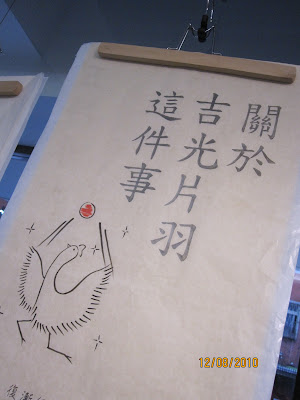 關於
吉光片羽
這件事
復漸
12/08/2010